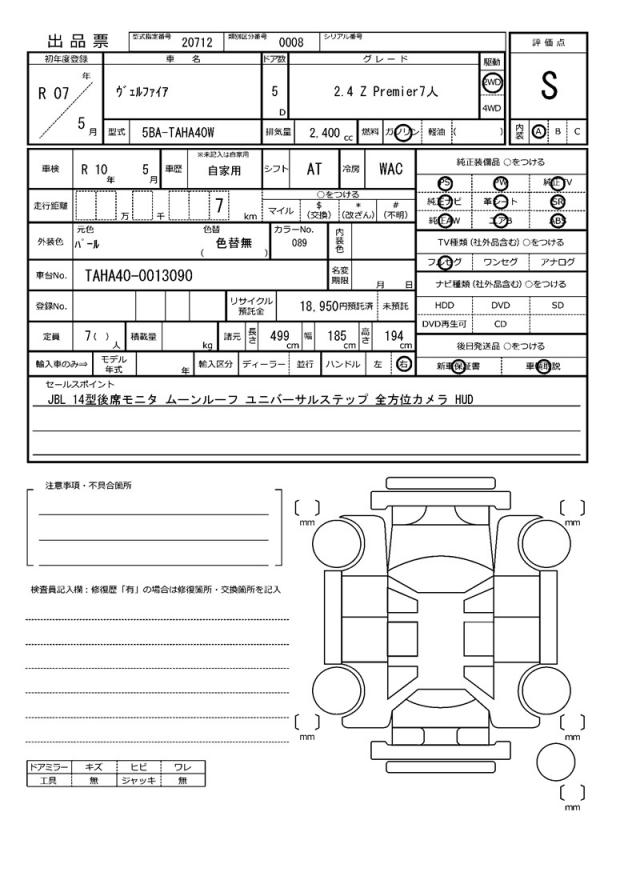 出品票 型式指定番号 20712 類別区分番号 0008 シリアル番号
評価点
S
初年度登録 車名 ドア数 グレード 駆動
R 07 年 5 月 ヴェルファイア 5 D 2.4 Z Premier7人 2WD
4WD
型式 5BA-TAHA40W 排気量 2,400 cc 燃料 ガソリン 軽油 ( )
内装 A B C
車検 R 10 年 5 月 車歴 ※未記入は自家用 自家用 シフト AT 冷房 WAC
純正装備品 ○をつける
PS PW 純正TV
純正ナビ 革シート SR
純正AW エアB ABS
走行距離 万 千 7 km ○をつける
マイル $ (交換) * (改ざん) # (不明)
外装色 元色 パール 色替 色替無 ( ) カラーNo. 089 内装色
TV種類 (社外品含む) ○をつける
フルセグ ワンセグ アナログ
車台No. TAHA40-0013090 名変期限 月 日
ナビ種類 (社外品含む) ○をつける
HDD DVD SD
DVD再生可 CD
登録No. リサイクル預託金 18,950円預託済 未預託
定員 7( ) 人 積載量 kg 諸元 長さ 499 cm 幅 185 cm 高さ 194 cm
後日発送品 ○をつける
新車保証書 車輌取説
輸入車のみ⇒ モデル年式 年 輸入区分 ディーラー 並行 ハンドル 左 右
セールスポイント
JBL 14型後席モニタ ムーンルーフ ユニバーサルステップ 全方位カメラ HUD
注意事項・不具合箇所
検査員記入欄：修復歴「有」の場合は修復箇所・交換箇所を記入
mm
mm
mm
mm
mm
ドアミラー キズ ヒビ ワレ
工具 無 ジャッキ 無